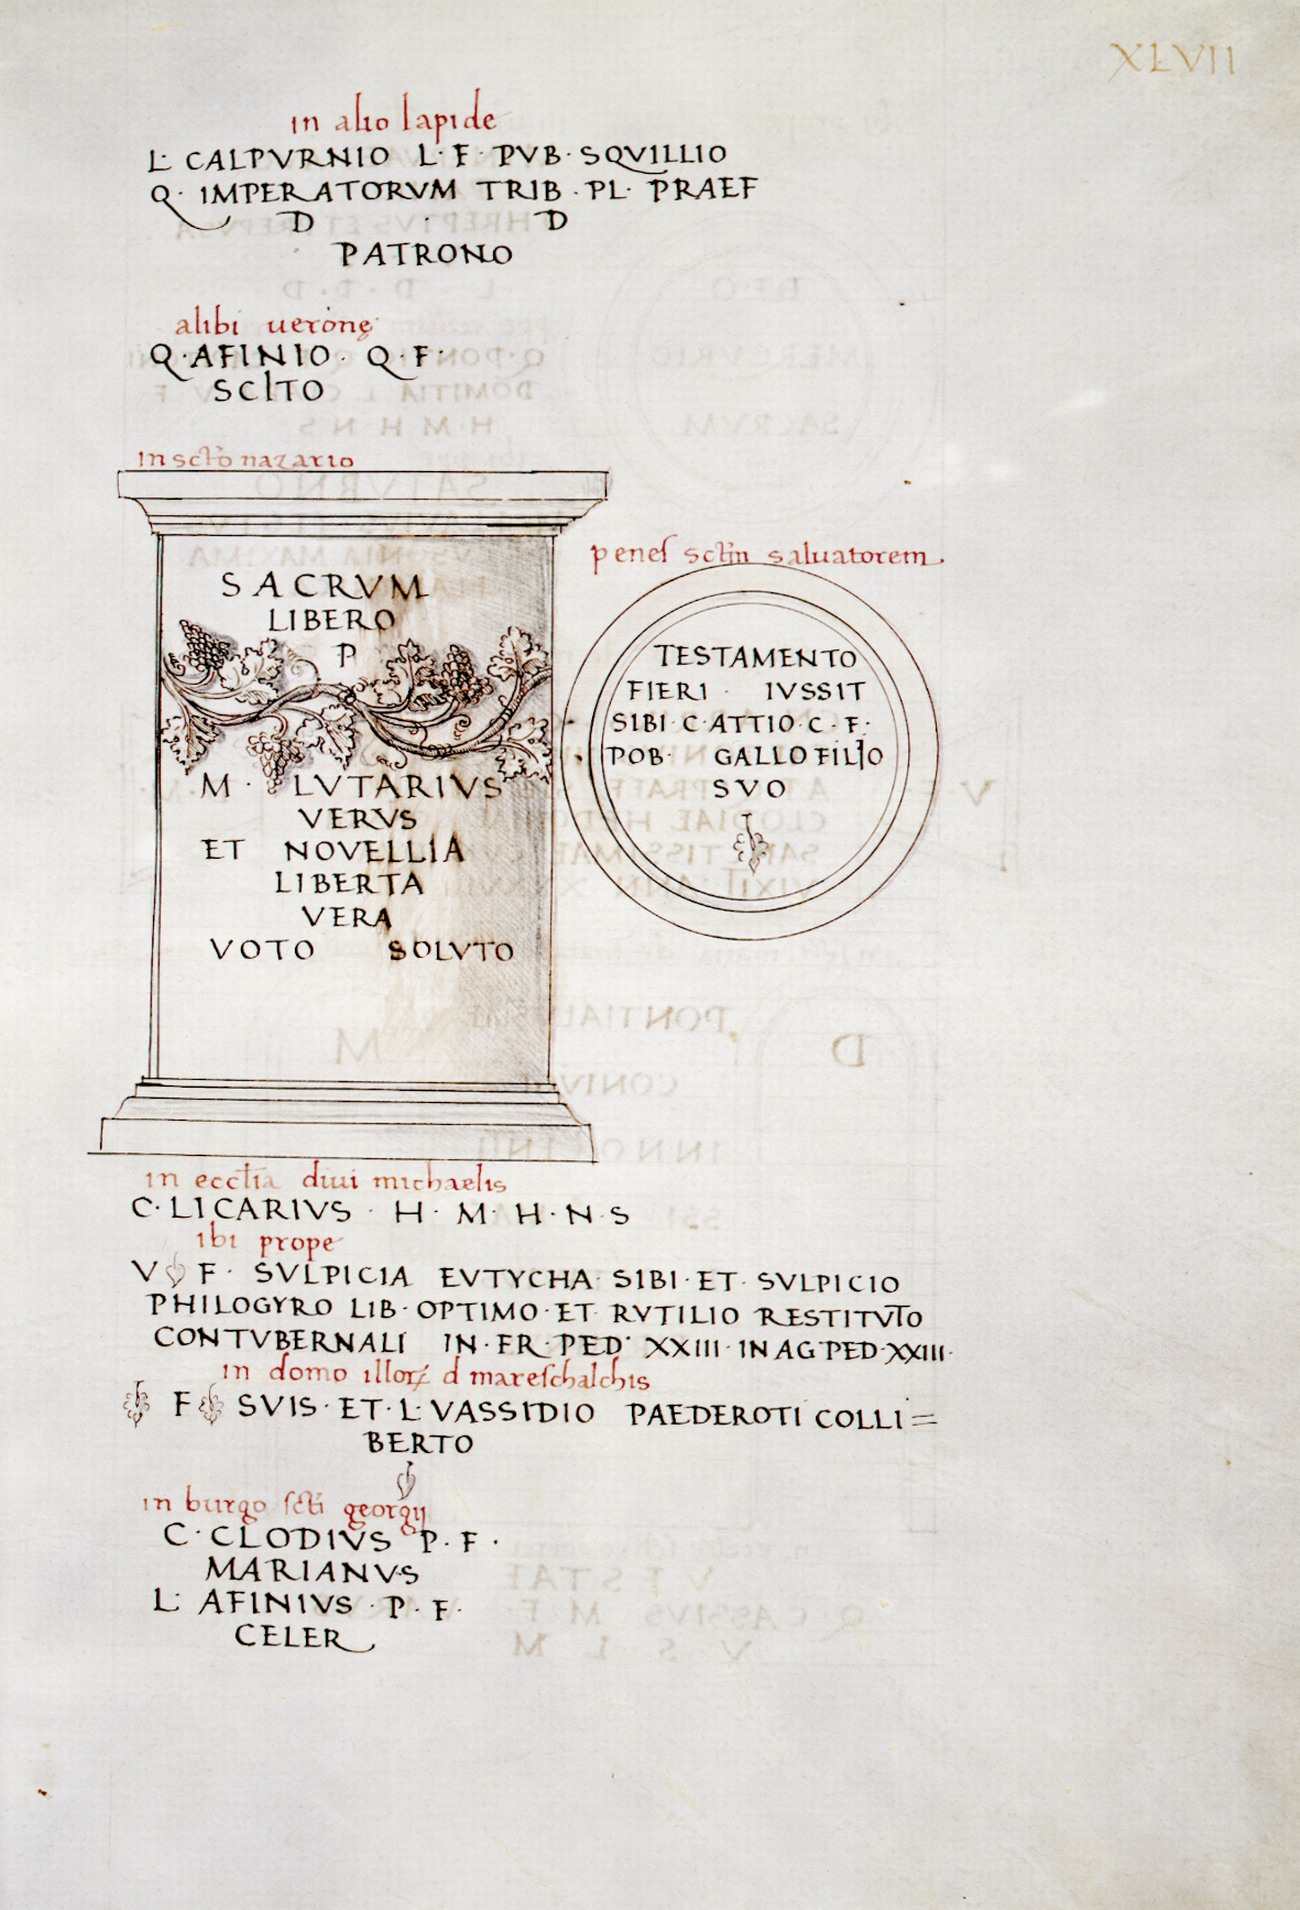 XLVII
in alio lapide
L· CALPVRNIO L·F·PVB·SQVILLIO
Q· IMPERATORVM TRIB·PL· PRAEF
D · D
PATRONO
alibi ueronę
Q·AFINIO· Q·F·
SCITO
in sctō nazario
SACRVM
LIBERO
P
M· LVTARIVS
VERVS
ET NOVELLIA
LIBERTA
VERA
VOTO SOLVTO
penes sctm̄ saluatorem
TESTAMENTO
FIERI · IVSSIT
SIBI·C·ATTIO·C·F·
POB· GALLO FILIO
SVO
in ecctia diui michaelis
C·LICARIVS · H· M·H·N·S
ibi prope
V F· SVLPICIA EVTYCHA·SIBI·ET·SVLPICIO
PHILOGYRO LIB·OPTIMO·ET RVTILIO RESTITVTO
CONTVBERNALI IN·FR·PED· XXIII·IN AG PED·XXIII·
in domo illoꝝ d mareschalchis
F SVIS·ET·L·VASSIDIO PAEDEROTI COLLI=
BERTO
in burgo scti georgij
C·CLODIVS P·F·
MARIANVS
L· AFINIVS·P·F·
CELER